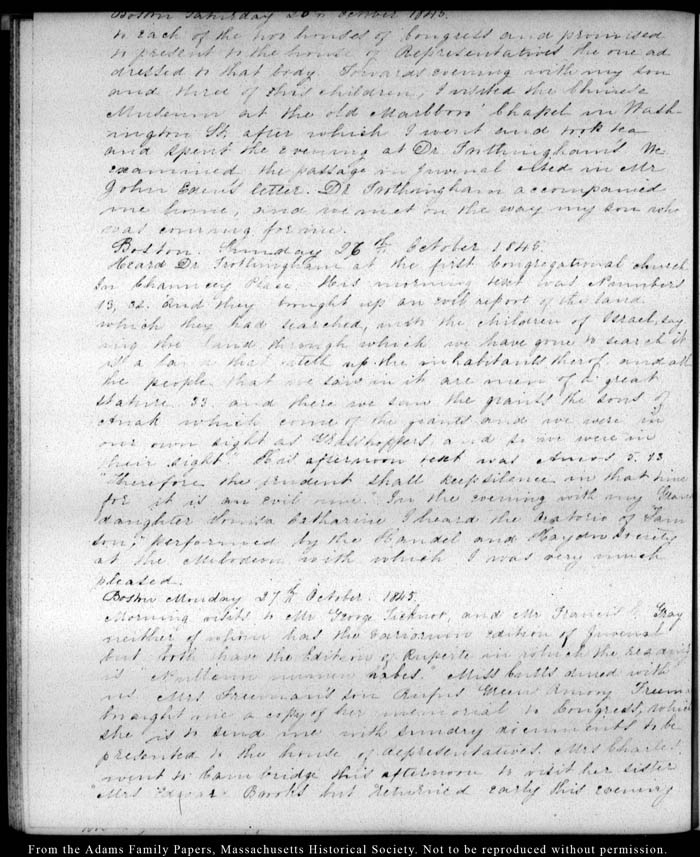 Boston Saturday 25th October 1845.
to each of the two houses of Congress and promised
to present to the house of Representatives the one ad
dressed to that body. Towards evening with my son
and three of his children, I visited the Chinese
Museum at the old Marlboro' Chapel in Wash
ington St. after which I went and took tea
and spent the evening at Dr Frothingham's We
examined the passage in Juvenal cited in Mr
John Eden's letter. Dr Frothingham accompanied
me home, and we met on the way my son who
was coming for me.
Boston. Sunday 26th. October 1845.
Heard Dr Frothingham at the first Congregational church
in Chauncey Place. His morning text was Numbers
13, 32. And they brought up an evil report of the land
which they had searched, unto the children of Israel, say
ing the land through which we have gone to search it
is a land that eateth up the inhabitants therof and all
the people that we saw in it are men of a great
stature 33. and there we saw the giants the sons of
Anak which come of the giants and we were in
our own sight as Grasshoppers, and so we were in
their sight" His afternoon text was Amos 5. 13
"Therefore the prudent shall keep silence in that time
for it is an evil time" In the evening with my Grand
daughter Louisa Catharine I heard the Oratorio of "Sam
son," performed by the Handel and Haydn Society
at the Melodeon, with which I was very much
pleased.
Boston Monday 27th October. 1845.
Morning visits to Mr George Ticknor, and Mr Francis C. Gray
neither of whom has the Variorum edition of Juvenal
but both have the Edition of Ruperti in which the reading
is "Nullum numen habes." Miss Cutts dined with
us Mrs Freeman's son Rufus Green Amory Freem
brought me a copy of her memorial to Congress, which
she is to send me with sundry documents to be
presented to the house of Representatives. Mrs Charles
went to Cambridge this afternoon to visit her sister
Mrs Edward Brooks but returned early this evening
From the Adams Family Papers, Massachusetts Historical Society. Not to be reproduced without permission.